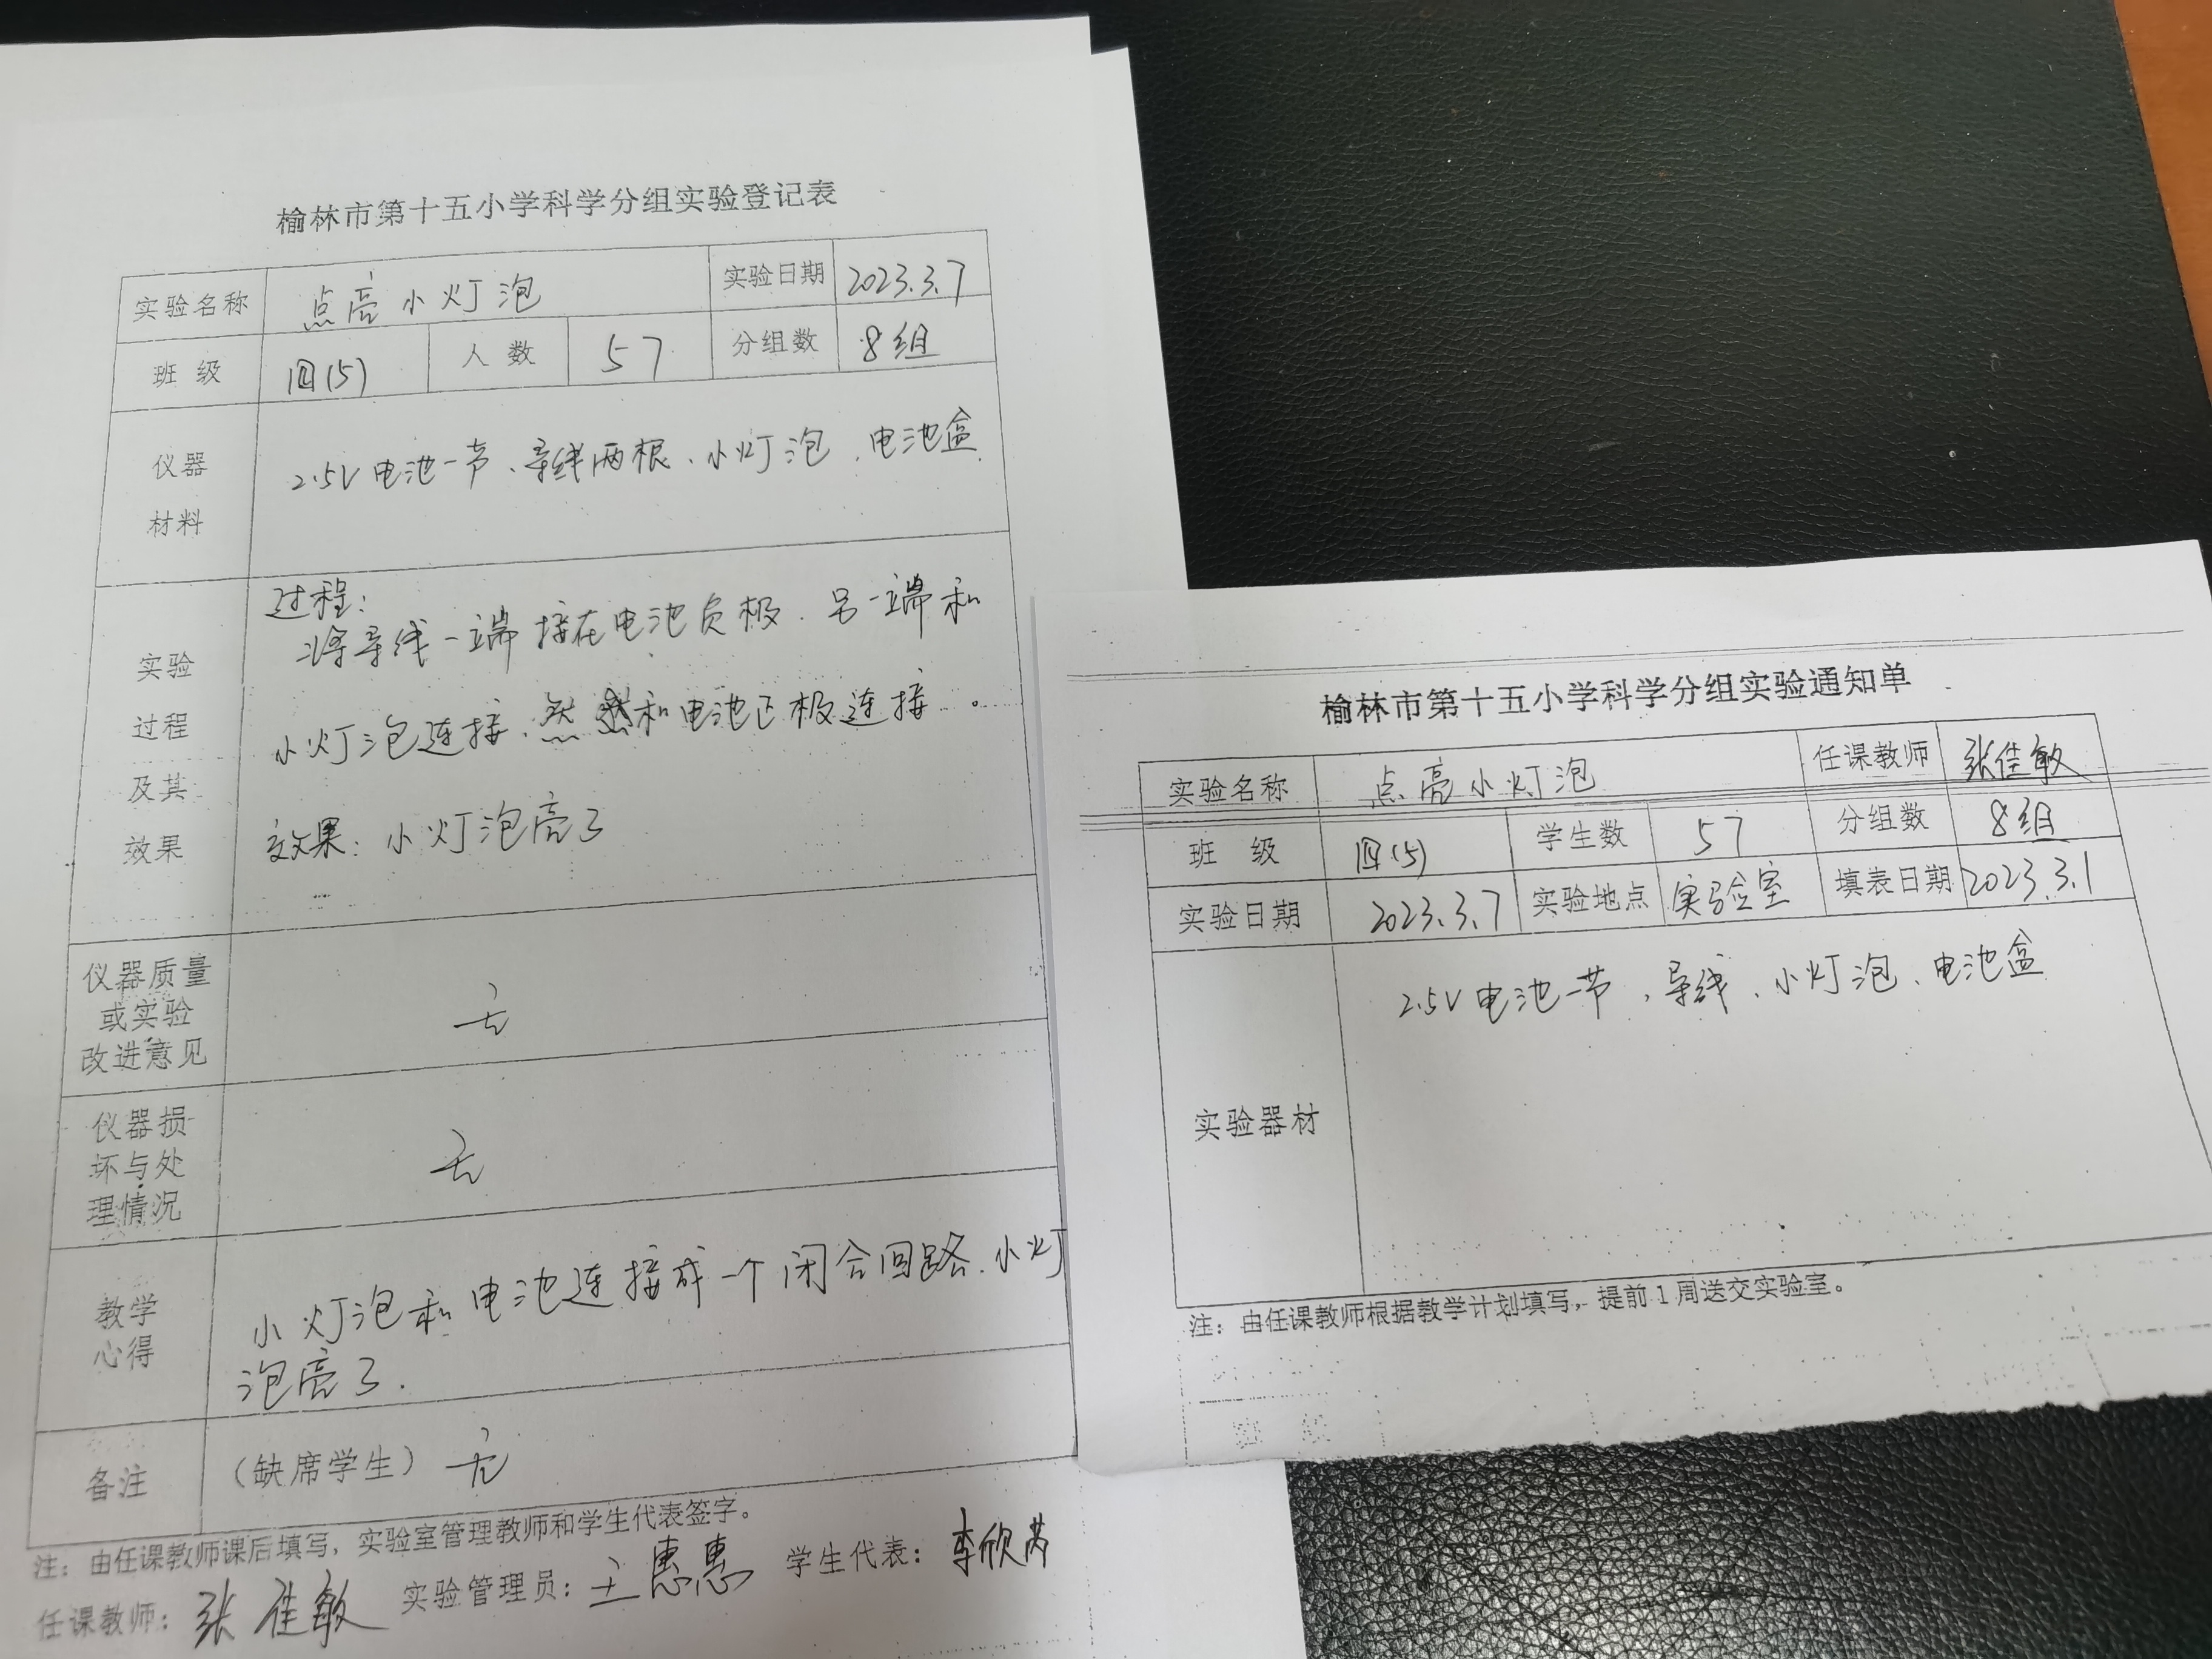 榆林市第十五小学科学分组实验登记表
实验名称 点亮小灯泡 实验日期 2023.3.7
班 级 四(5) 人 数 57 分组数 8组
仪器
材料
2.5V电池一节、导线两根、小灯泡、电池盒
实验
过程
及其
效果
过程:
将导线一端接在电池负极、另一端和
小灯泡连接、然 和电池正极连接。
效果:小灯泡亮了
仪器质量
或实验
改进意见
无
仪器损
坏与处
理情况
无
教学
心得
小灯泡和电池连接成一个闭合回路、小灯
泡亮了.
备注 (缺席学生) 无
注:由任课教师课后填写,实验室管理教师和学生代表签字。
任课教师: 张佳敏 实验管理员: 王惠惠 学生代表: 李欣芮
榆林市第十五小学科学分组实验通知单
实验名称 点亮小灯泡 任课教师 张佳敏
班 级 四(5) 学生数 57 分组数 8组
实验日期 2023.3.7 实验地点 实验室 填表日期 2023.3.1
实验器材
2.5V电池一节、导线、小灯泡、电池盒
注:由任课教师根据教学计划填写,提前1周送交实验室。
班 级